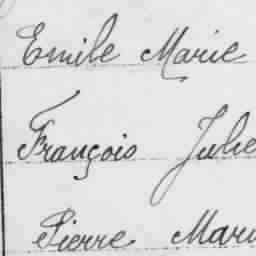 Emile Marie
François Julie
Pierre Marie